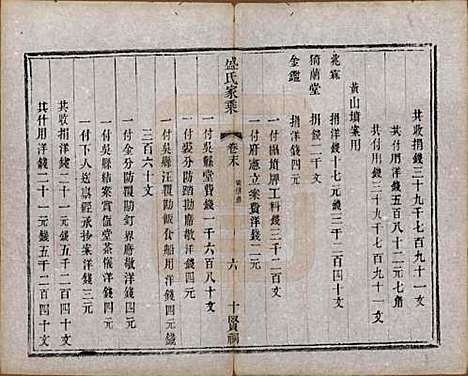 共收捐錢三十九千七百九十一文
共付用洋錢五百八十二元七角
共付用錢三十九千七百九十一文
黃山墳案用
兆霖 捐洋錢十七元錢三千二百四十文
猗蘭堂 捐錢二千文
金鑑 捐洋錢四元
一付磡墳牌工料錢三千一百文
一付府憲立案費洋錢二元
盛氏家乘
卷末
六
十賢祠
一付吳縣堂費錢一千六百八十文
一付裝分防踏勘廝敬洋錢四元
一付吳縣汪覆勘飯食船用洋錢四元錢
三百六十文
一付金分防覆勘釘界廝敬洋錢四元
一付吳縣結案賞值堂茶儀洋錢四元
一付卞人迄稟經承抄案洋錢三元
共收捐洋錢二十一元錢五千二百四十文
共付用洋錢二十一元錢五千二百四十文